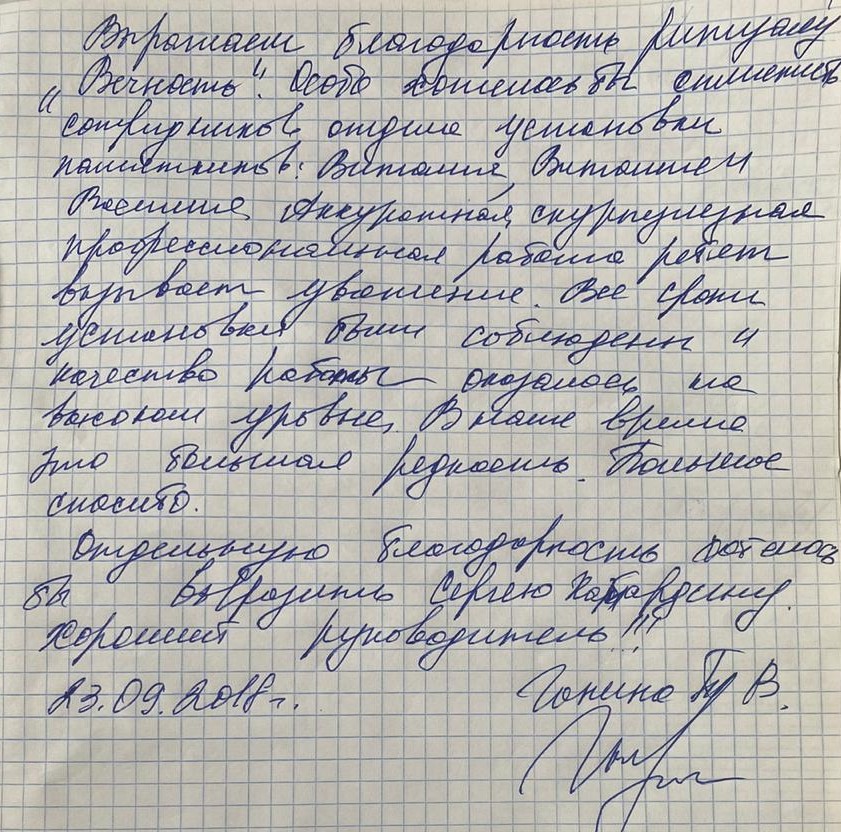 Выражаем благодарность ритуалу
"Вечность". Особо хотелось бы отметить
сотрудников отдела установки
памятников: Виталия, Виталия и
Василия. Аккуратная, скурпулезная
профессиональная работа ребят
вызывает уважение. Все сроки
установки были соблюдены и
качество работы оказалось на
высоком уровне. В наше время
это большая редкость. Большое
спасибо.
Отдельную благодарность хотелось
бы выразить Сергею
хороший руководитель!!!
23.09.2018 г.
В.